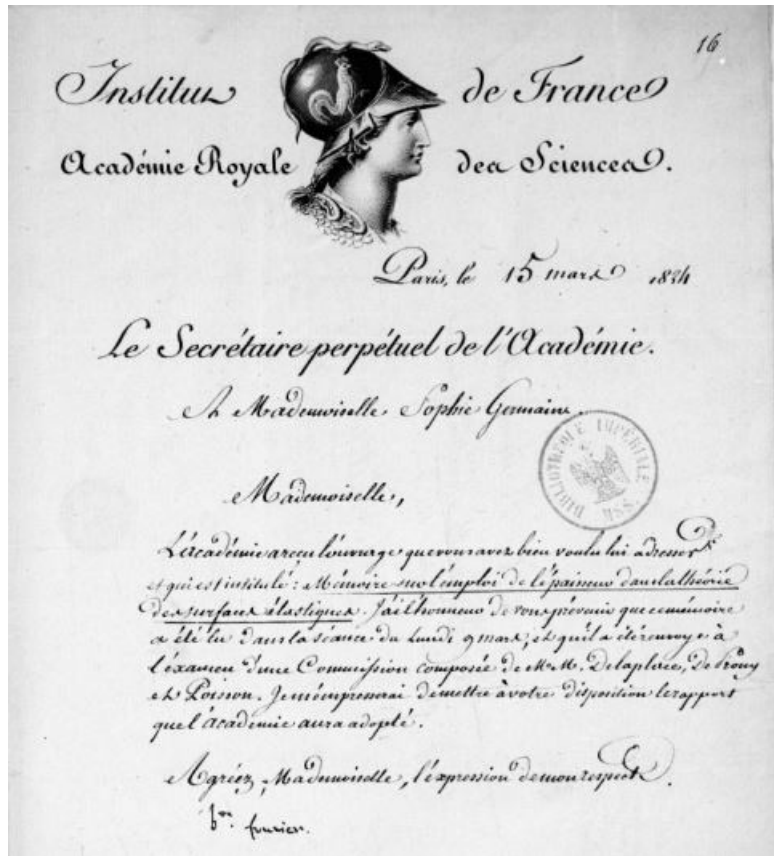 16
Institut de France
Académie Royale des Sciences.
Paris, le 15 mars 1824
Le Secrétaire perpétuel de l'Académie.
A Mademoiselle Sophie Germaine.
BIBLIOTHÈQUE IMPÉRIALE MSS
Mademoiselle,
L'académie a reçu l'ouvrage que vous avez bien voulu lui adresser
et qui est intitulé: Mémoire sur l'emploi de l'épaisseur dans la théorie
des surfaces élastiques. J'ai l'honneur de vous prévenir que ce mémoire
a été lu dans la séance du Lundi 9 mars, et qu'il a été renvoyé à
l'éxamen d'une Commission composée de M.M. Delaplace, De Prony
et Poisson. Je m'empresserai de mettre à votre disposition le rapport
que l'académie aura adopté.
Agréez, Mademoiselle, l'expression de mon respect.
b.on fourier.